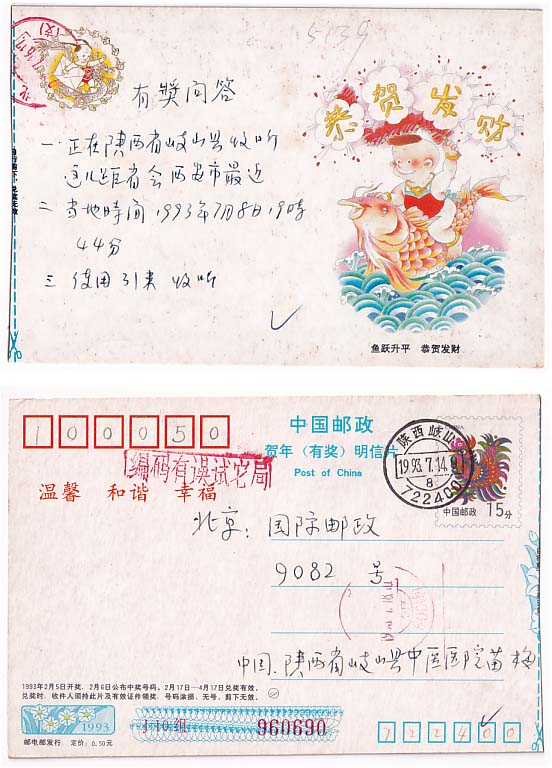 5139
恭贺发财
有奬问答
一 正在陕西省岐山县收听
这儿距省会西安市最近
二 当地時间1993年7月8日19時
44分
三 使用 引来 收听
鱼跃升平 恭贺发财
100050
中国邮政
贺年（有奖）明信片
Post of China
编码有误试宅局
温馨 和谐 幸福
陕西岐山
1993.7.14.
8
722400
中国邮政 15分
北京：国际邮政
9082 号
中国.陕西省岐山县中医医院苗梅
1993年2月5日开奖，2月6日公布中奖号码，2月17日—4月17日兑奖有效。
兑奖时，收件人须持此片及有效证件领奖，号码涂损、无号、剪下无效。
1993
邮电部发行 定价：0.50元
110组 960690
722400